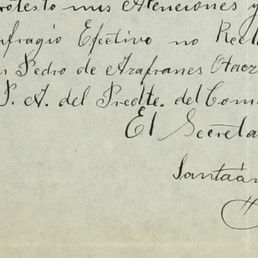 rotesto mis atenciones y
ufragio Efectivo no Reel
Pedro de Azafranes Otaez
P. A. del Predte. del Com
El Secreta
Santia